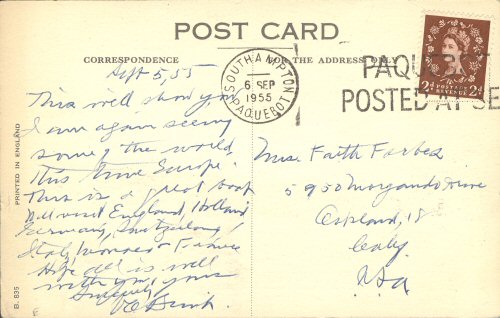 POST CARD
CORRESPONDENCE
FOR THE ADDRESS ONLY
Sept 5, 55
This will show you
I am again seeing
some of the world
this time Europe.
This is a great boat
Will visit England, Holland
Germany, Switzerland,
Italy, Monaco & France
Hope all is well
with you, yours
Sincerely
SOUTHAMPTON
6 SEP
1955
PAQUEBOT
PAQUEBOT
POSTED AT SEA
2d POSTAGE REVENUE 2d
Mrs. Faith Forbes
5950 Morgando Drive
Oakland, 18
Caly
USA
PRINTED IN ENGLAND
B. 835
E